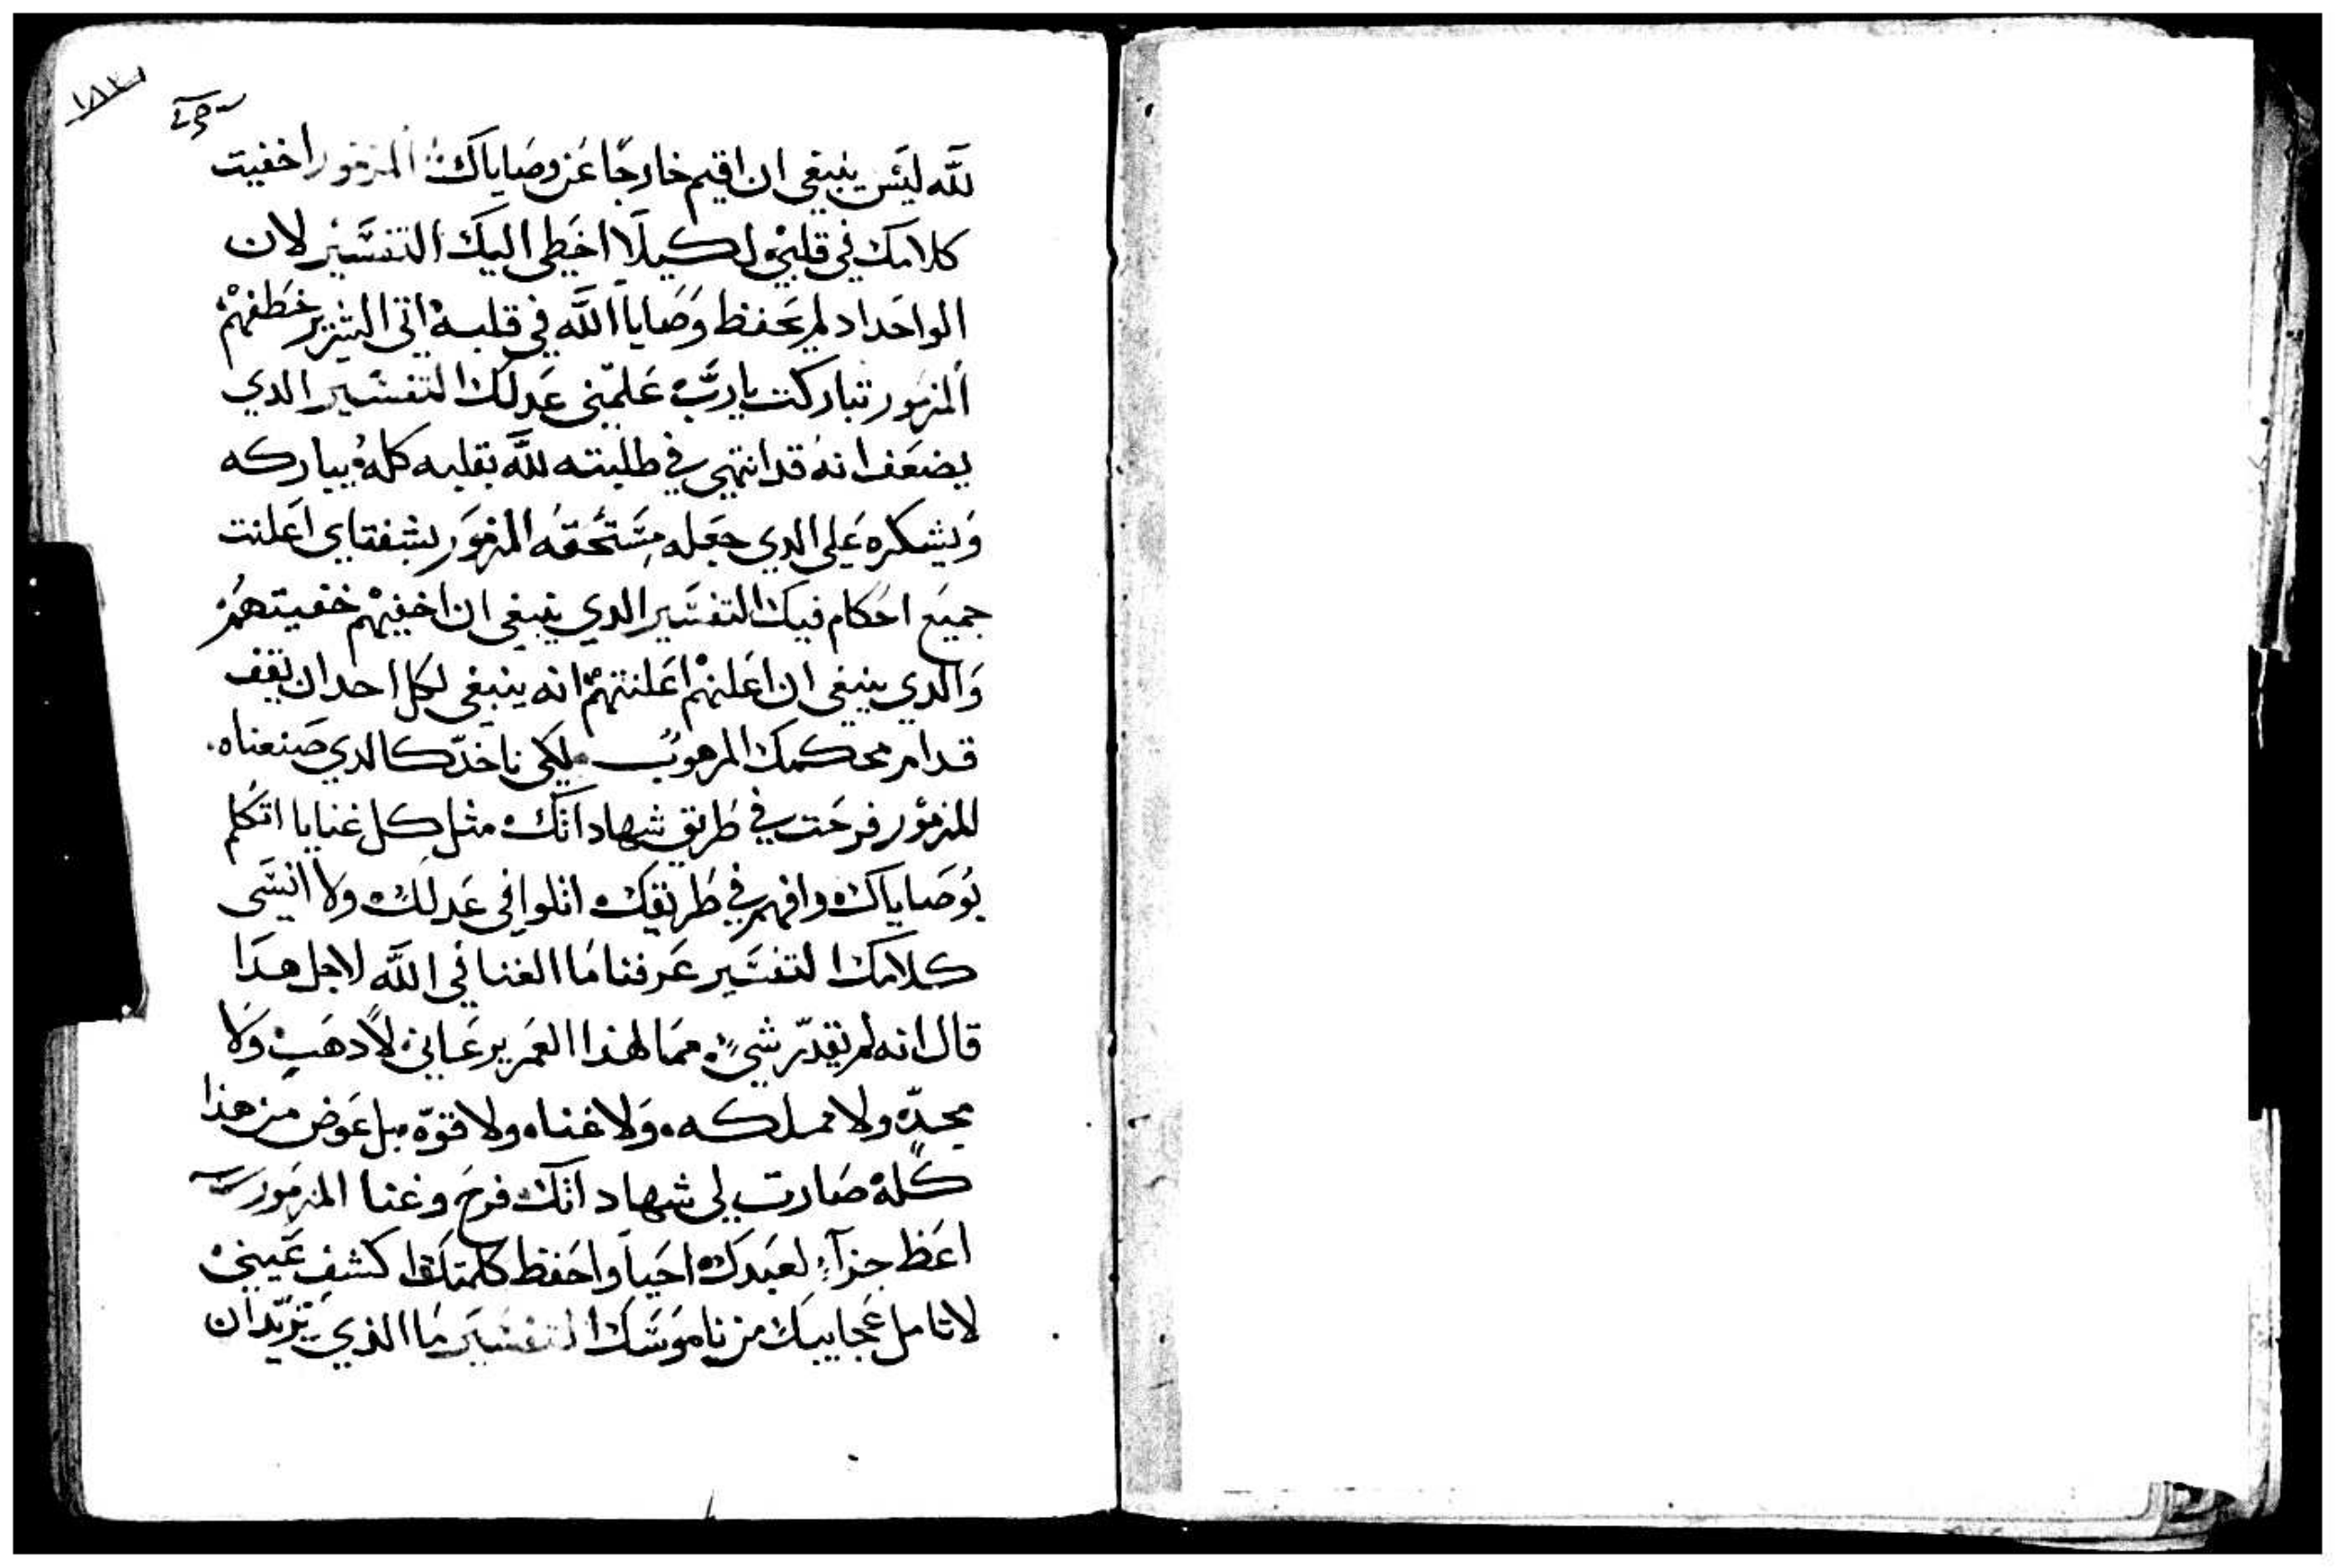 لله ليس ينبغي ان اقيم خارجًا عن وصاياك المزمور اخفيت
كلامك في قلبي لكيلا اخطي اليك التفسير لان
الواحد اد لم يحفظ وصايا الله في قلبه اتى الشرير خطفهم
المزمور تباركت يارب علمني عدلك التفسير الدي
يضعف انه قد انتهى في طلبته لله بقلبه كله يباركه
ويشكره على الدي جعله مستحقه المزمور بشفتاي اعلنت
جميع احكام فيك التفسير الدي ينبغي ان اخفيهم خفيتهم
والدي ينبغي ان اعلنهم اعلنتهم انه ينبغي لكل احد ان يقف
قدام محكمك المرهوب لكي ناخد كالدي صنعناه
المزمور فرحت في طريق شهاداتك مثل كل غنايا اتكلم
بوصاياك وافهم في طريقك اتلوا في عدلك ولا انسى
كلامك التفسير عرفنا ما الغنا في الله لاجل هدا
قال انه لم يقدر شيء مما لهذا العمر يرعاني لا دهب ولا
مجد ولا مملكه ولا غناه ولا قوه بل عوض من هذا
كله صارت لي شهاداتك فرح وغنا المزمور
اعط جزآء لعبدك احيا واحفظ كلمتك اكشف عيني
لاتامل عجايبك من ناموسك التفسير ما الذي تريد ان